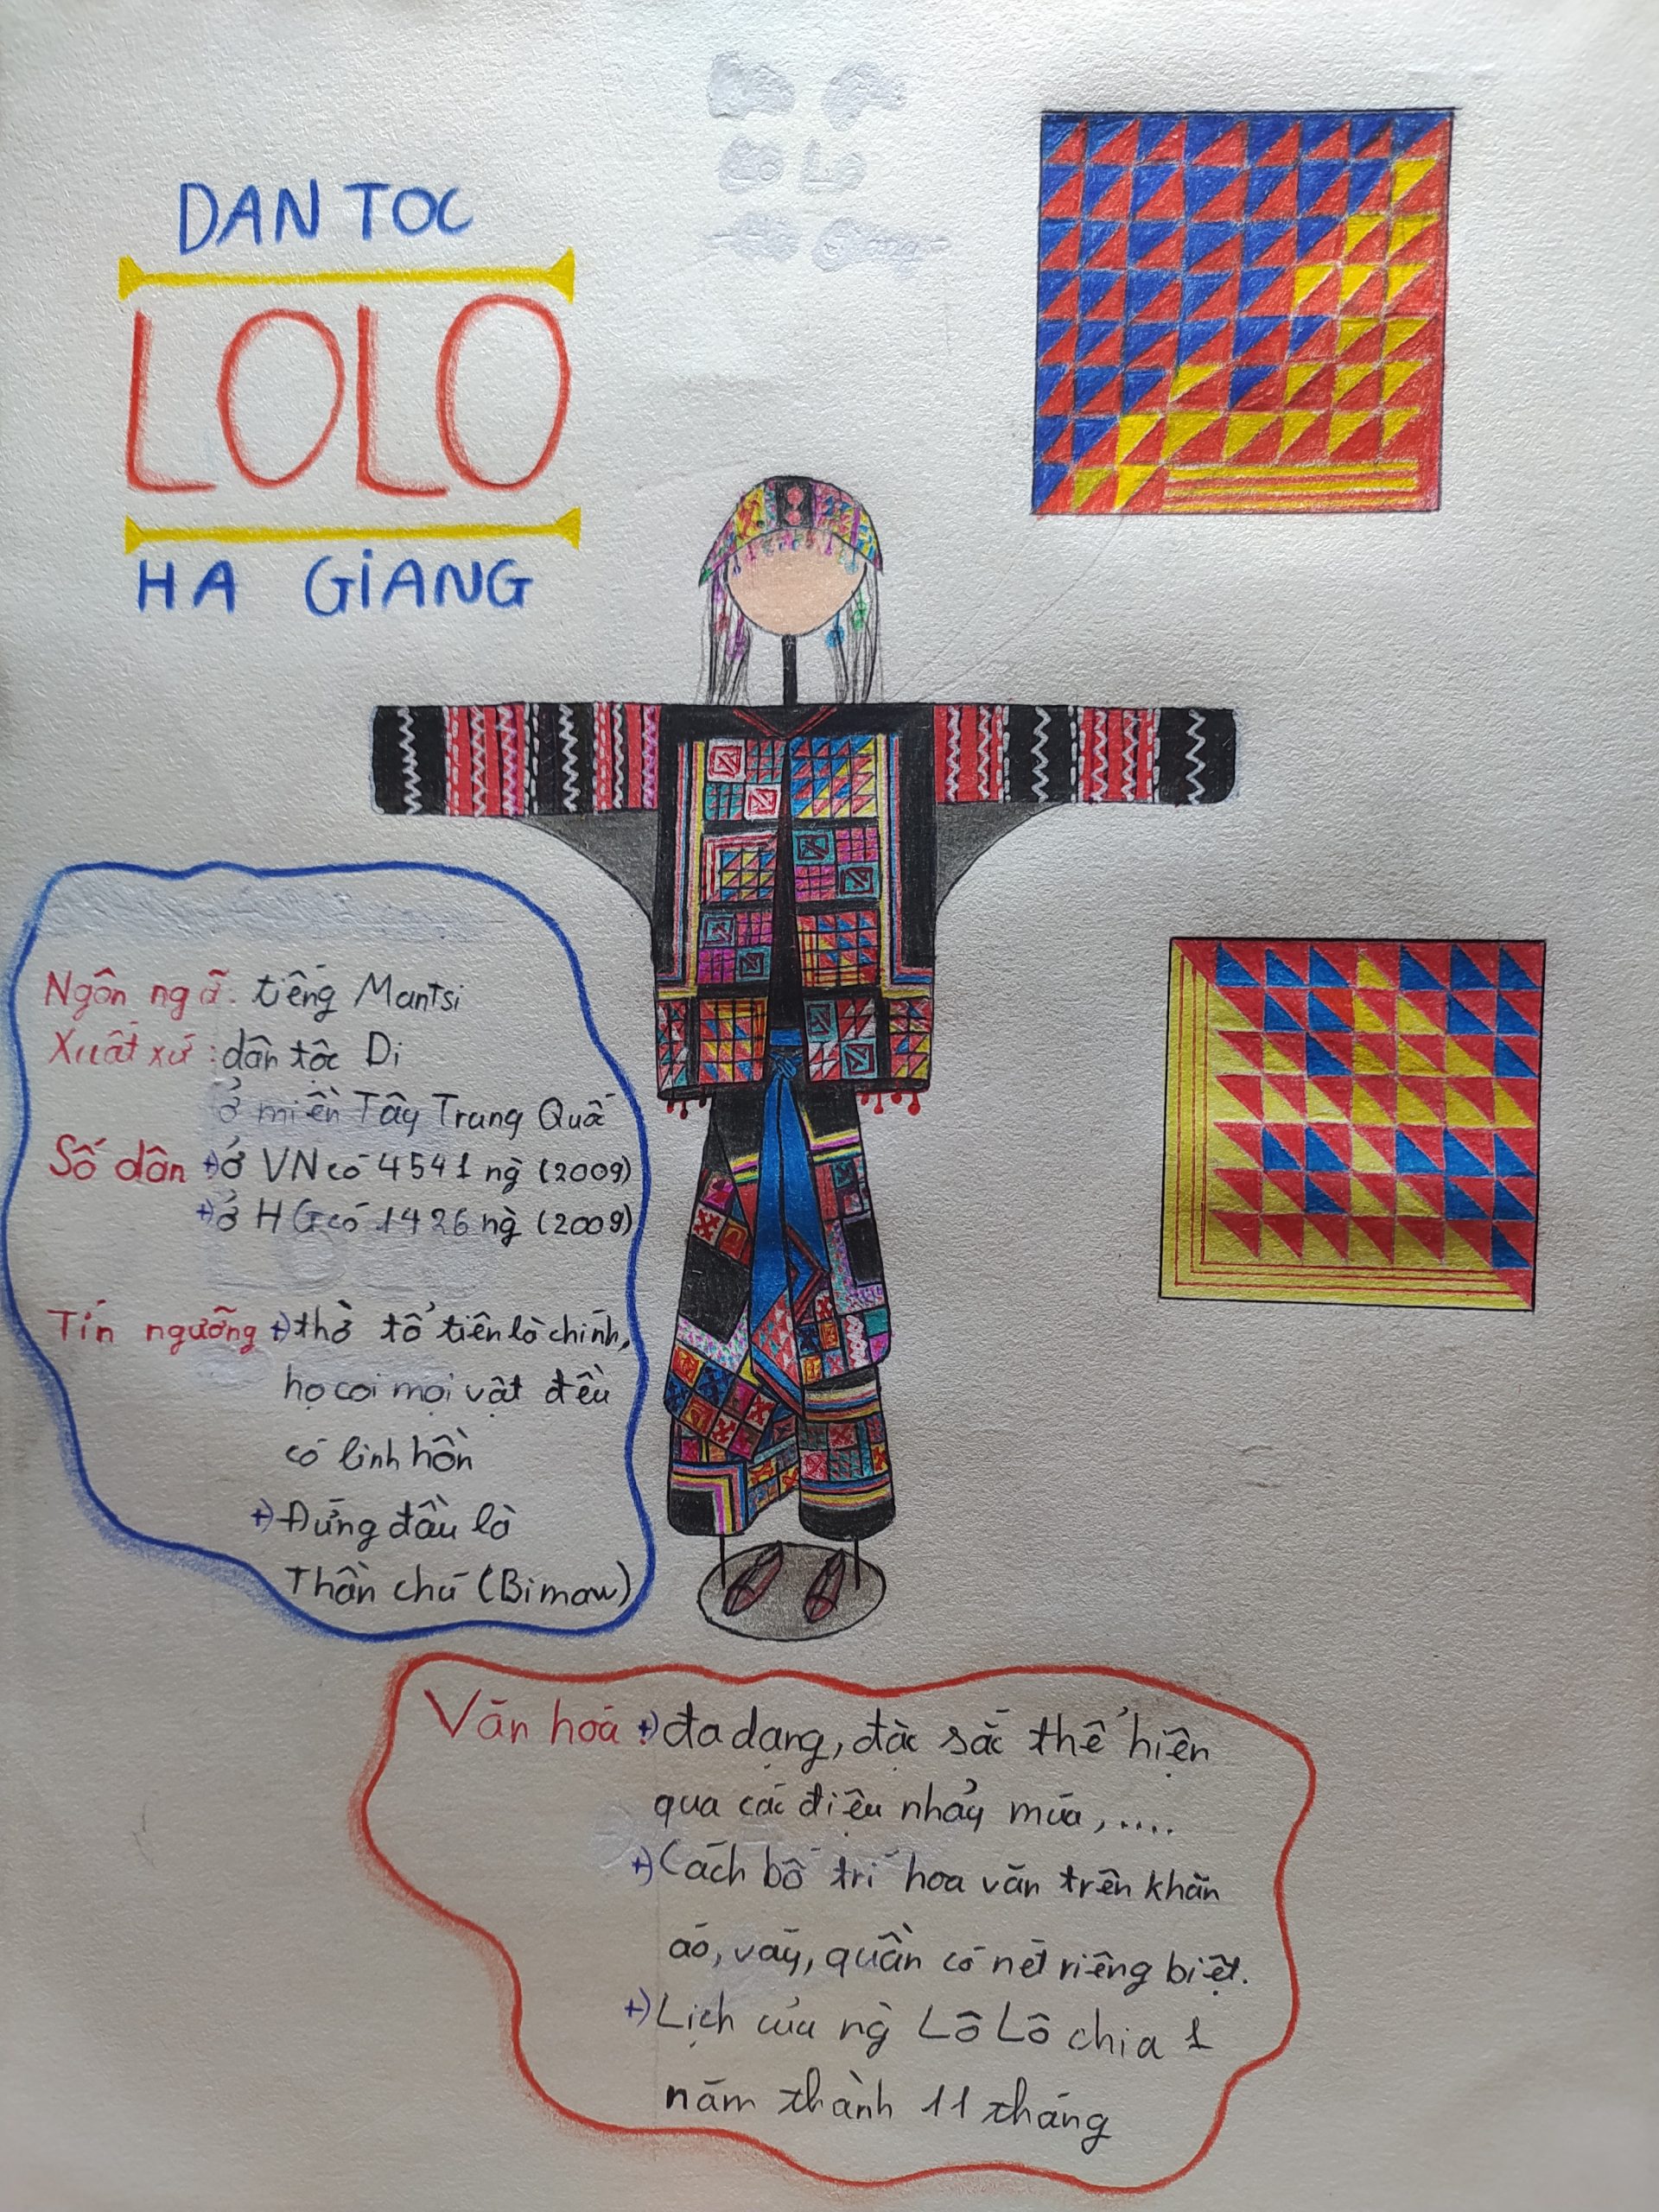 DAN TOC
LOLO
HA GIANG
Ngôn ngữ: tiếng Mantsi
Xuất xứ: dân tộc Di
ở miền Tây Trung Quố
Số dân +) ở VN có 4541 ng` (2009)
+) ở HG có 1426 ng` (2009)
Tín ngưỡng +) thờ tổ tiên là chính,
họ coi mọi vật đều
có linh hồn
+) Đứng đầu là
Thần chú (Bimaw)
Văn hoá: +) đa dạng, đặc sắc thể hiện
qua các điệu nhảy múa,....
+) Cách bố trí hoa văn trên khăn
áo, váy, quần có nét riêng biệt.
+) Lịch của ng` Lô Lô chia 1
năm thành 11 tháng